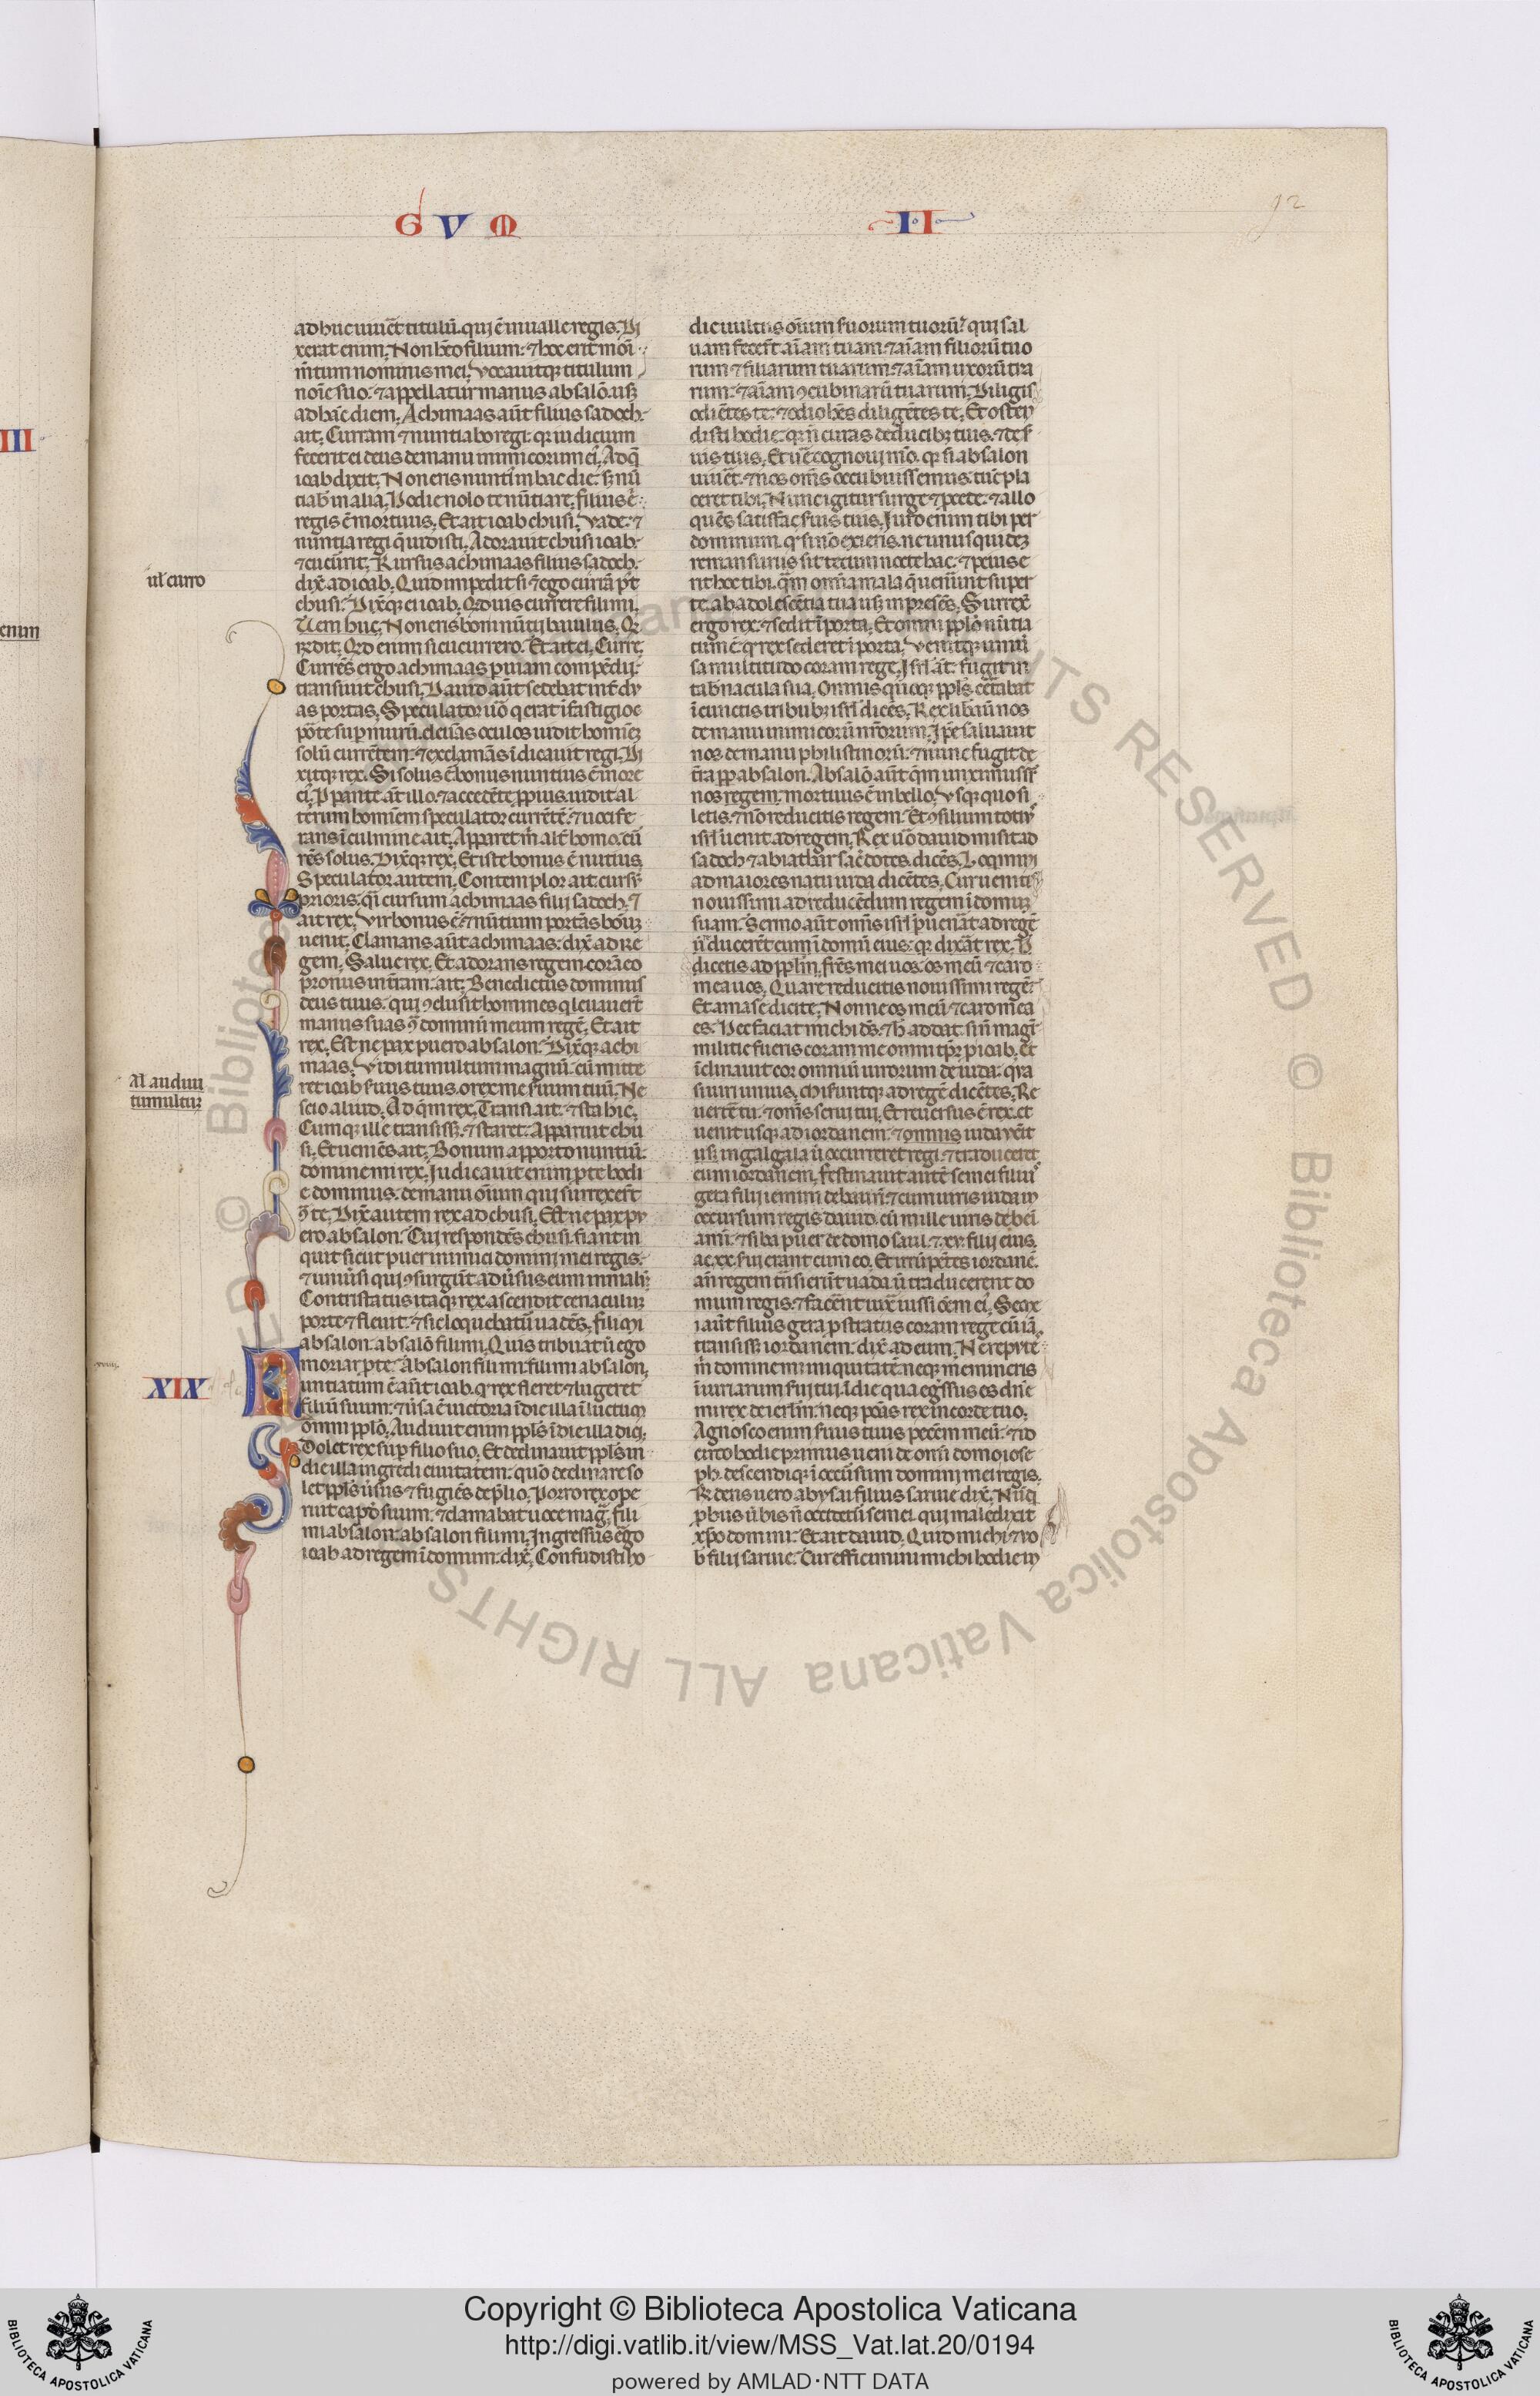 G V M
II
92
III
enim
adhuc uiuēt titulū. qui ē in ualle regis. Di
xerat enim. Non hēo filium. ⁊ hoc erit moni
m̄tum nominis mei. Vocauitqꝫ titulum
noīe suo. ⁊ appellatur manus absalō usqꝫ
ad hāc diem. Achimaas aūt filius sadoch.
ait. Curram ⁊ nuntiabo regi. qꝛ iudicium
fecerit ei deus de manu inimicorum ei. Ad q̄
ioab dixit. Non eris nuntī in hac die. sꝫ nū
tiab in alia. Hodie nolo te nūtiare. filius .n.
regis ē mortuus. Et ait ioab chusi. Vade. ⁊
nuntia regi q̄ uidisti. Adorauit chusi ioab.
⁊ cucurrit. Rursus achimaas filius sadoch.
dix̄ ad ioab. Quid impedit si ⁊ ego currā pꝰt
chusi. Dix̄qꝫ ei ioab. Qd uis currere fili mi.
Veni huc. Non eris boni nūtij baiulus. Qi
rn̄dit. Qd enim si cucurrero. Et ait ei. Curre.
Currēs ergo achimaas p uiam compēdij.
transiuit chusi. Dauid aūt sedebat int̄ du
as portas. Speculator uō q̇ erat ī fastigio
porte sup murū. eleuās oculos uidit hominē
solū currētem. ⁊ exclamās īdicauit regi. Di
xitqꝫ rex. Si solus ē bonus nuntius ē in ore
ei. Ppante aūt illo. ⁊ accedēte ppius. uidit al
terum hominem speculator currētē. ⁊ uocife
rans ī culmine ait. Apparet m̄ alt̄ homo. cu
rēs solus. Dix̄qꝫ rex. Et iste bonus ē nūtius.
Speculator autem. Contemplor ait cursū
prioris. q̄i cursum achimaas filij sadoch. ⁊
ait rex. Vir bonus ē. ⁊ nūtium portās bonū
uenit. Clamans aūt achimaas. dix̄ ad re
gem. Salue rex. Et adorans regem corā eo
pronus in t̄ram. ait. Benedictus dominus
deus tuus. qui ꝯclusit homines q̇ leuauer̄t
manus suas ꝯ̄ dominū meum regē. Et ait
rex. Est ne pax puero absalon. Dix̄qꝫ achi
maas. Vidi tumultum magnū. cū mitte
ret ioab suus tuus. o rex me suum tuū. Ne
scio aliud. Ad q̄m rex. Transi ait. ⁊ sta hic.
Cumqꝫ ille transissꝫ. ⁊ staret. Apparuit chu
si. Et ueniēs ait. Bonum apporto nuntiū.
domine mi rex. Judicauit enim p te hodi
e dominus. de manu oīum qui surrexer̄t
ꝯ̄ te. Dix̄ autem rex ad chusi. Est ne pax pu
ero absalon. Cui respondēs chusi. fiant in
quit sicut puer inimici domini mei regis.
⁊ uniūsi qui ꝯsurgūt aduersus eum in malū
Contristatus itaqꝫ rex ascendit cenaculum
porte ⁊ fleuit. ⁊ sic loquebatur uadēs. fili mi
absalon. absalō fili mi. Quis tribuat ut ego
moriar p te. Absalon fili mi. fili mi absalon.
Nuntiatum ē aūt ioab. qꝛ rex fleret ⁊ lugeret
filiū suum. ⁊ ūsa ē uictoria ī die illa ī luctum
omni pplō. Audiuit enim ppls̄ ī die illa dici.
Dolet rex sup filio suo. Et declinauit ppls̄ in
die illa ingredi ciuitatem. quō declinare so
let ppls̄ ūsus ⁊ fugiēs de plio. Porro rex ope
ruit caput suum. ⁊ clamabat uoce mag̃. fili
mi absalon. absalon fili mi. Ingressus ergo
ioab ad regem ī domum. dix̄. Confudisti ho
ul' curro
Al' audiui
tumultum
XIX
die uultus oīum suorum tuorū. qui sal
uam fecer̄t aīam tuam. ⁊ aīam filiorū tuo
rum ⁊ filiarum tuarum. ⁊ aīam uxorū tua
rum. ⁊ aīam ꝯcubinarū tuarum. Diligis
odiētes te. ⁊ odio hēs diligētes te. Et osten
disti hodie. qꝛ n̄ curas de ducibꝫ tuis. ⁊ de s
uis tuis. Et ūe cognoui mō. qꝛ si absalon
uiuēt. ⁊ nos om̄s occubuissemus. tūc pla
ceret tibi. Nunc igitur surge ⁊ pcede. ⁊ allo
quēs satisfac suis tuis. Juro enim tibi per
dominum. qꝛ si nō exieris. ne unus quidem
remansurus sit tecum nocte hac. ⁊ peius e
rit hoc tibi. q̄m omnia mala q̄ uenerunt super
te. ab adolescētia tua usqꝫ in presēs. Surrex̄
ergo rex. ⁊ sedit ī porta. Et omni pplo nūtia
tum ē. qꝛ rex sederet ī porta. Venitqꝫ uniū
sa multitudo coram rege. Isrl aūt fugit in
tab̄nacula sua. Omnis quoqꝫ ppls̄. certabat
ī cunctis tribubꝫ isrl dicēs. Rex libauit nos
de manu inimicorū nrorum. Ipe saluauit
nos de manu philistinorū. ⁊ nunc fugit de
t̄ra pp absalon. Absalō aūt q̄m unximus sup
nos regem. mortuus ē in bello. Vsqꝫ quo si
letis. ⁊ nō reducitis regem. Et ꝯsilium totiꝰ
isrl uenit ad regem. Rex uō dauid misit ad
sadoch ⁊ abiathar sac̄dotes. dicēs. Loquimi
ad maiores natu iuda dicētes. Cur uenitis
nouissimi ad reducēdum regem ī domum
suam. Sermo aūt omīs isrl puenat ad regē
ut ducerēt eum ī domū eius. qꝛ dixāt rex. H
dicetis ad pplm. fr̄es mei uos. os meū ⁊ caro
mea uos. Quare reducitis nouissimi regē.
Et amase dicite. Nonne os meū ⁊ caro mea
es. Hec faciat michi ds̄. ⁊ h̄ addat. si n̄ magr̄
militie fueris coram me omni tp̄r p ioab. Et
īclinauit cor omniū uirorum de iuda. q̇si
uiri unius. Miseruntqꝫ ad regē dicētes. Re
uertē tu. ⁊ om̄s serui tui. Et reuersus ē rex. et
uenit usqꝫ ad iordanem. ⁊ omnis iuda ueīt
usqꝫ in galgala ut occurreret regi. ⁊ traduceret
eum iordanem. festinauit autē semei filiuꝰ
gera filij iemini de baurī. ⁊ cum uiris iuda in
occursum regis dauid. cū mille uiris de beni
ami. ⁊ siba puer de domo saul. ⁊ .xv. filij eius.
ac .xx. sui erant cum eo. Et irrūpētes iordanē.
an̄ regem tr̄nsierūt uada. ut traducerent do
mum regis. ⁊ facerēt iux̄ iussiōem ei. Seme
i aūt filius gera pstratus coram rege cū iā.
transissꝫ iordanem. dix̄ ad eum. Ne reputē
m̄ domine mi iniquitatē. neqꝫ memineris
īiuriarum sui tui ī die qua egressus es dn̄e
mi rex de ierlm. neqꝫ ponas rex in corde tuo.
Agnosco enim suus tuus peccm meū. ⁊ id
circo hodie primus ueni de omī domo iose
ph. descendiqꝫ ī occursum domini mei regis.
Rn̄dens uero abysai filius saruie dix̄. Nunquid
p hiis ūbis n̄ occidetur semei. qui maledixit
xp̄o domini. Et ait dauid. Quid michi ⁊ uo
b filij saruie. Cur efficimini michi hodie in
Copyright © Biblioteca Apostolica Vaticana
http://digi.vatlib.it/view/MSS_Vat.lat.20/0194
powered by AMLAD·NTT DATA
BIBLIOTECA APOSTOLICA VATICANA
BIBLIOTECA APOSTOLICA VATICANA
© Biblioteca Apostolica Vaticana ALL RIGHTS RESERVED